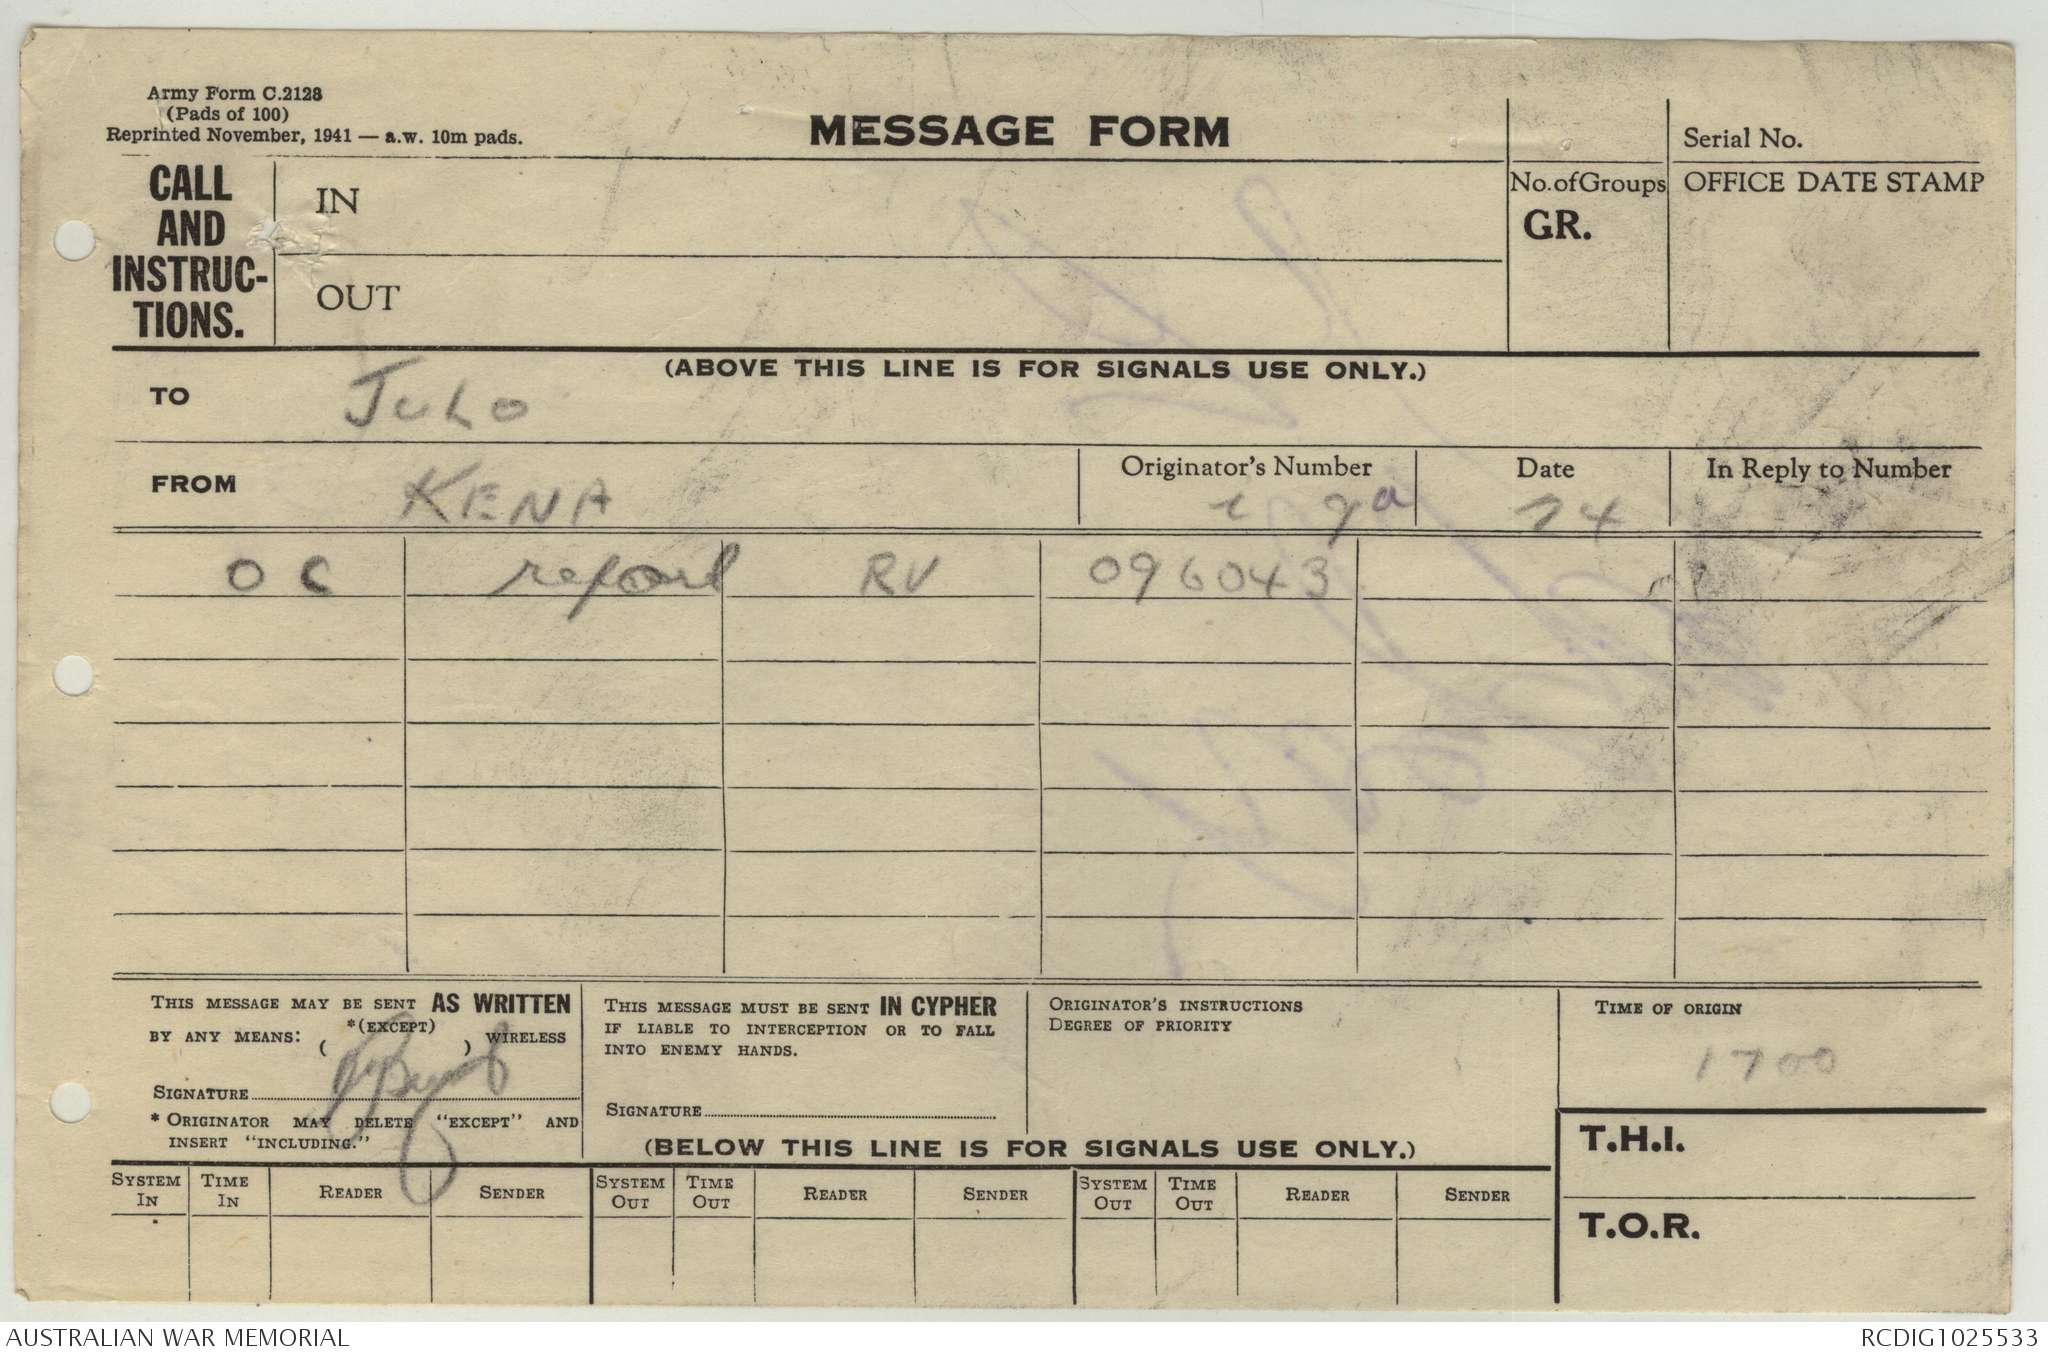 Army Form C.2128
(Pads of 100)
Reprinted November, 1941 — a.w. 10m pads.
MESSAGE FORM
Serial No.
CALL AND INSTRUC-TIONS.
IN
OUT
No. of Groups
GR.
OFFICE DATE STAMP
(ABOVE THIS LINE IS FOR SIGNALS USE ONLY.)
TO JULO
FROM KENA
Originator's Number
Date 24
In Reply to Number
OC report RV 096043
THIS MESSAGE MAY BE SENT AS WRITTEN
BY ANY MEANS: *(EXCEPT) ( ) WIRELESS
SIGNATURE
* ORIGINATOR MAY DELETE "EXCEPT" AND
INSERT "INCLUDING."
THIS MESSAGE MUST BE SENT IN CYPHER
IF LIABLE TO INTERCEPTION OR TO FALL
INTO ENEMY HANDS.
SIGNATURE
ORIGINATOR'S INSTRUCTIONS
DEGREE OF PRIORITY
TIME OF ORIGIN
1700
(BELOW THIS LINE IS FOR SIGNALS USE ONLY.)
T.H.I.
T.O.R.
SYSTEM IN TIME IN READER SENDER SYSTEM OUT TIME OUT READER SENDER SYSTEM OUT TIME OUT READER SENDER
AUSTRALIAN WAR MEMORIAL
RCDIG1025533